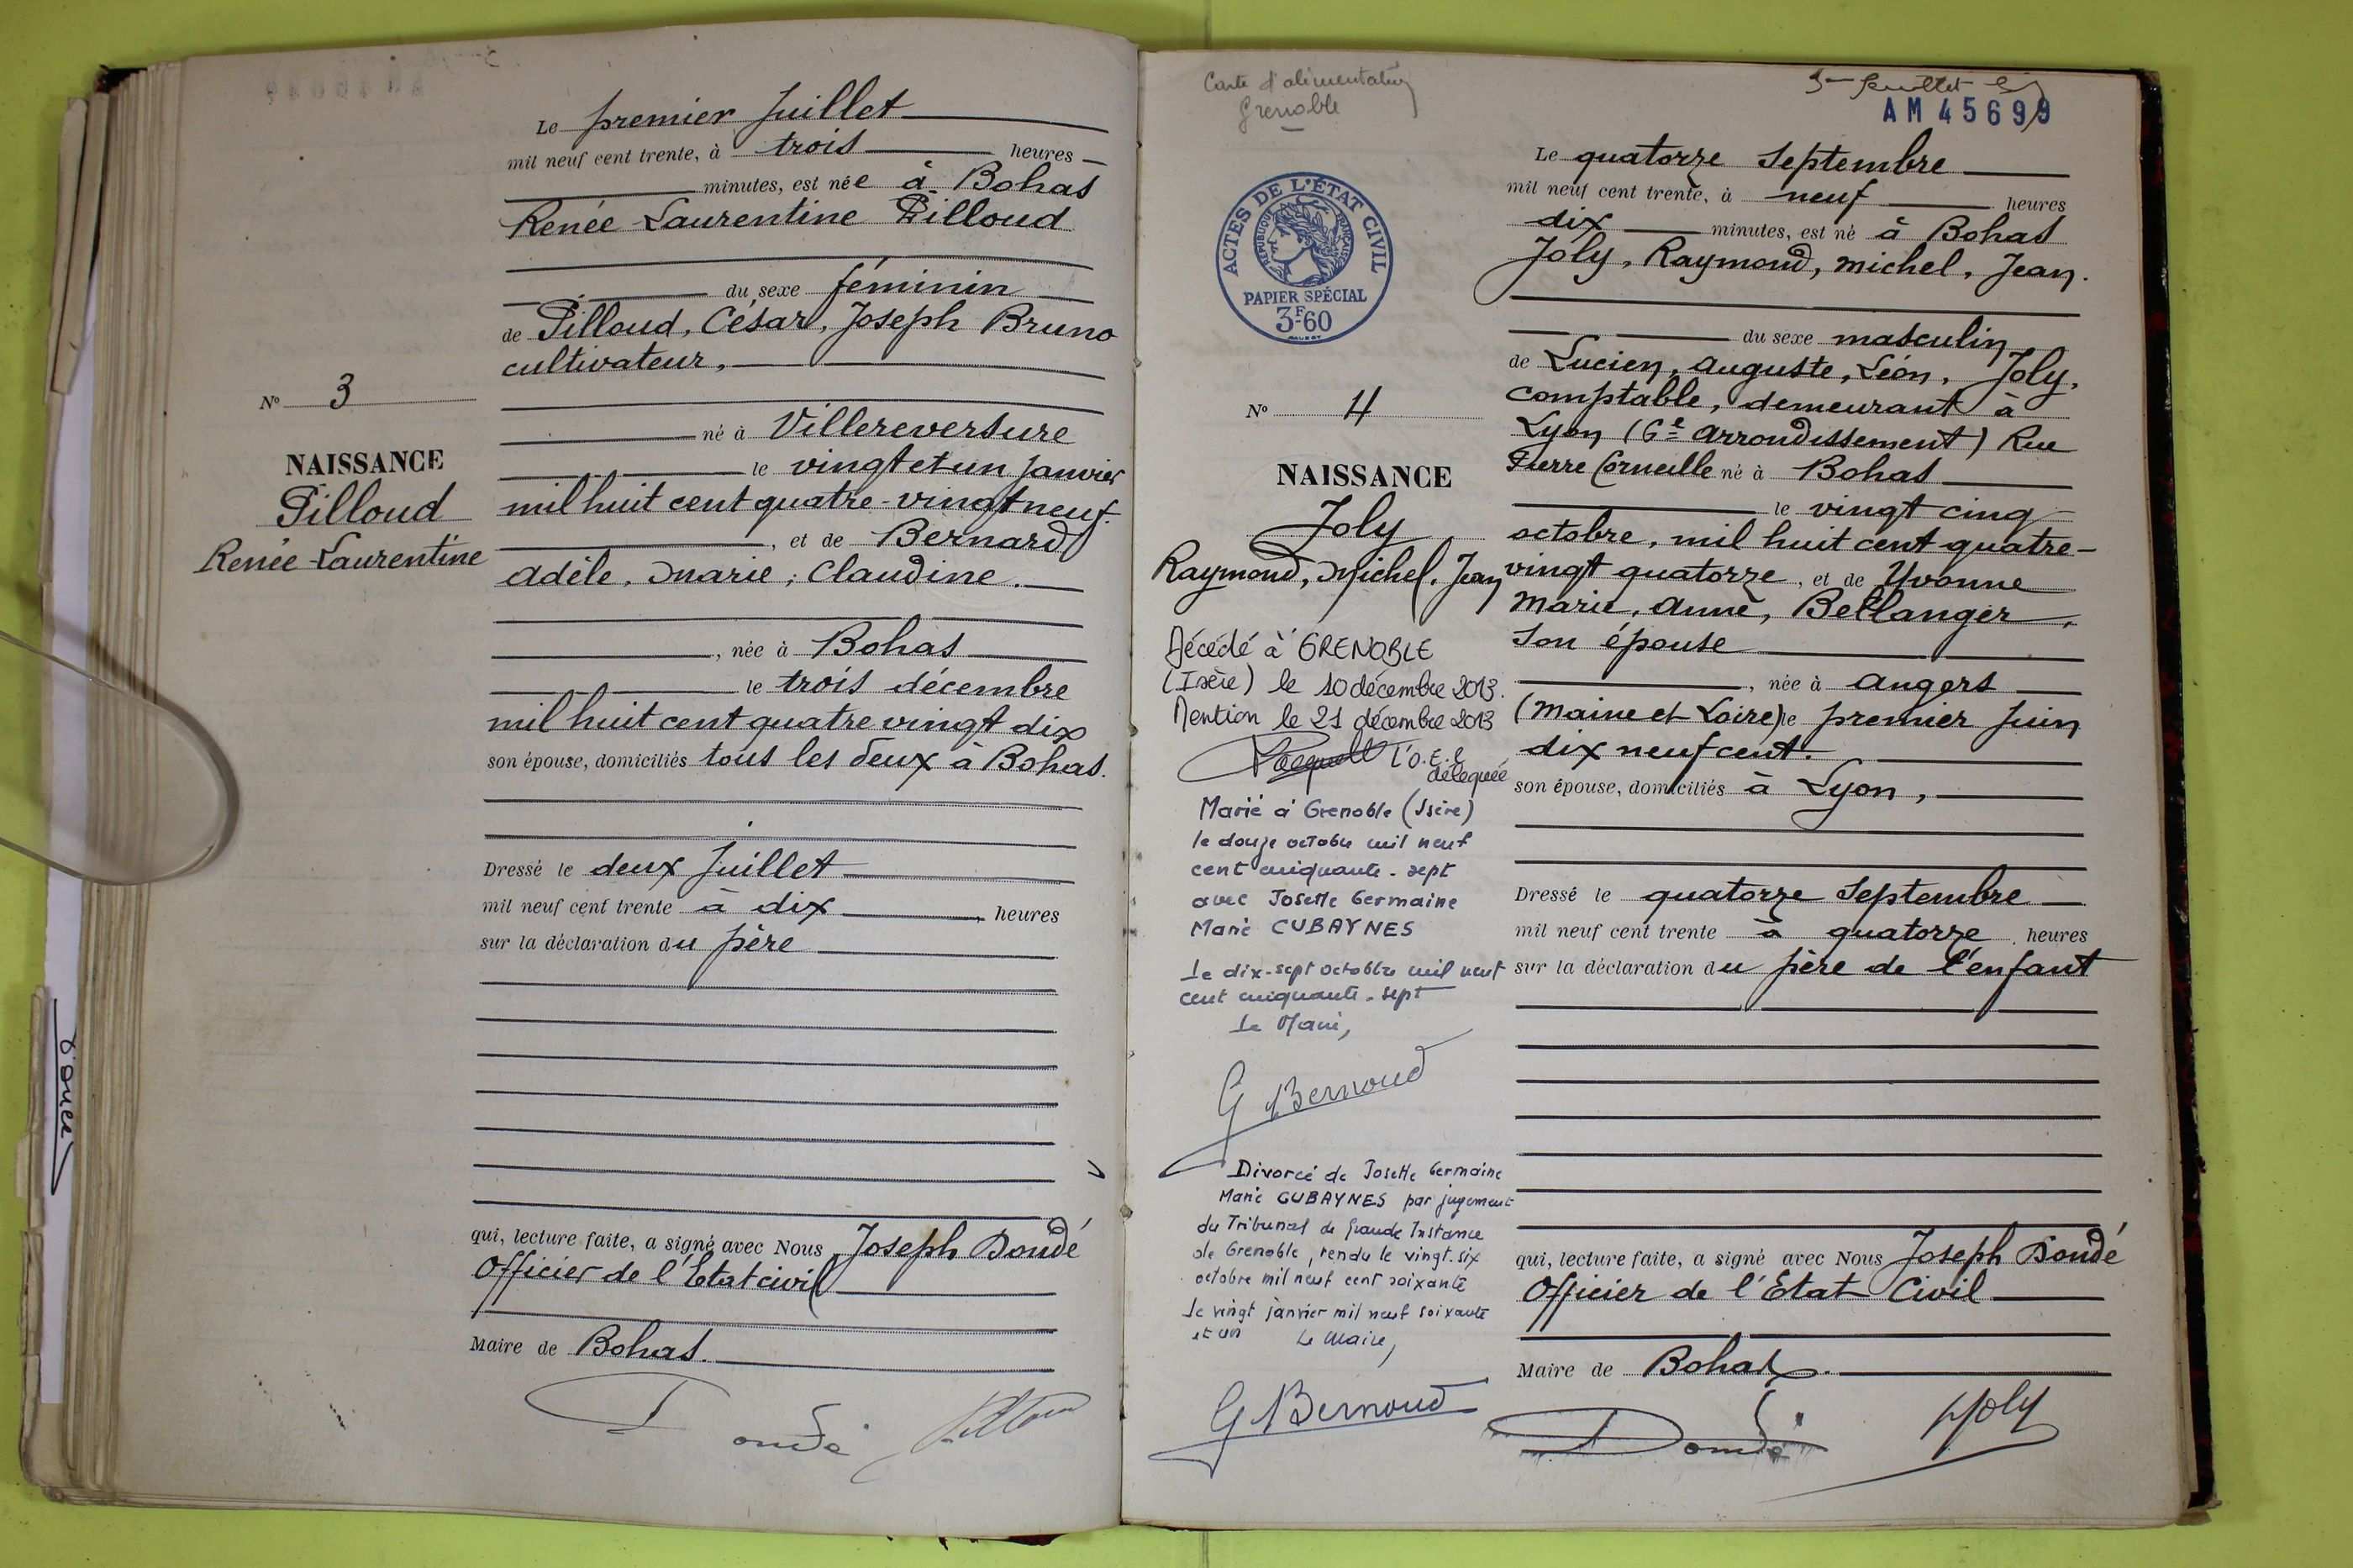 Le premier Juillet
mil neuf cent trente, à trois heures
minutes, est née à Bohas
Renée Laurentine Pilloud
du sexe féminin
de Pilloud, César, Joseph Bruno
cultivateur,
né à Villereversure
le vingt et un janvier
mil huit cent quatre-vingt neuf.
, et de Bernard
Adèle, Marie, Claudine.
, née à Bohas
le trois décembre
mil huit cent quatre vingt dix
son épouse, domiciliés tous les deux à Bohas.
Dressé le deux Juillet
mil neuf cent trente à dix heures
sur la déclaration du père
qui, lecture faite, a signé avec Nous Joseph Dondé
Officier de l'Etat civil
Maire de Bohas.
Dondé
N° 3
NAISSANCE
Pilloud
Renée Laurentine
Carte d'alimentation
Grenoble
AM 45699
ACTES DE L'ÉTAT CIVIL
RÉPUBLIQUE FRANÇAISE
PAPIER SPÉCIAL
3F60
N° 4
NAISSANCE
Joly
Raymond, Michel, Jean
Décédé à GRENOBLE
(Isère) le 10 décembre 2013.
Mention le 21 décembre 2013
L'O.E.C
déléguée
Marié à Grenoble (Isère)
le douze octobre mil neuf
cent cinquante-sept
avec Josette Germaine
Marie CUBAYNES
Le dix-sept octobre mil neuf
cent cinquante-sept
Le Maire,
G Bernoud
Divorcé de Josette Germaine
Marie CUBAYNES par jugement
du Tribunal de Grande Instance
de Grenoble, rendu le vingt-six
octobre mil neuf cent soixante
Le vingt janvier mil neuf soixante
et un Le Maire,
G Bernoud
Le quatorze Septembre
mil neuf cent trente, à neuf heures
dix minutes, est né à Bohas
Joly, Raymond, Michel, Jean.
du sexe masculin
de Lucien, Auguste, Léon, Joly,
comptable, demeurant à
Lyon (6e Arrondissement) Rue
Pierre Corneille né à Bohas
le vingt cinq
octobre, mil huit cent quatre-
vingt quatorze, et de Yvonne
Marie, Anne, Bellanger,
Son épouse
, née à Angers
(Maine et Loire) le premier Juin
dix neuf cent.
son épouse, domiciliés à Lyon,
Dressé le quatorze Septembre
mil neuf cent trente à quatorze heures
sur la déclaration du père de l'enfant
qui, lecture faite, a signé avec Nous Joseph Dondé
Officier de l'Etat Civil
Maire de Bohas.
Dondé Joly